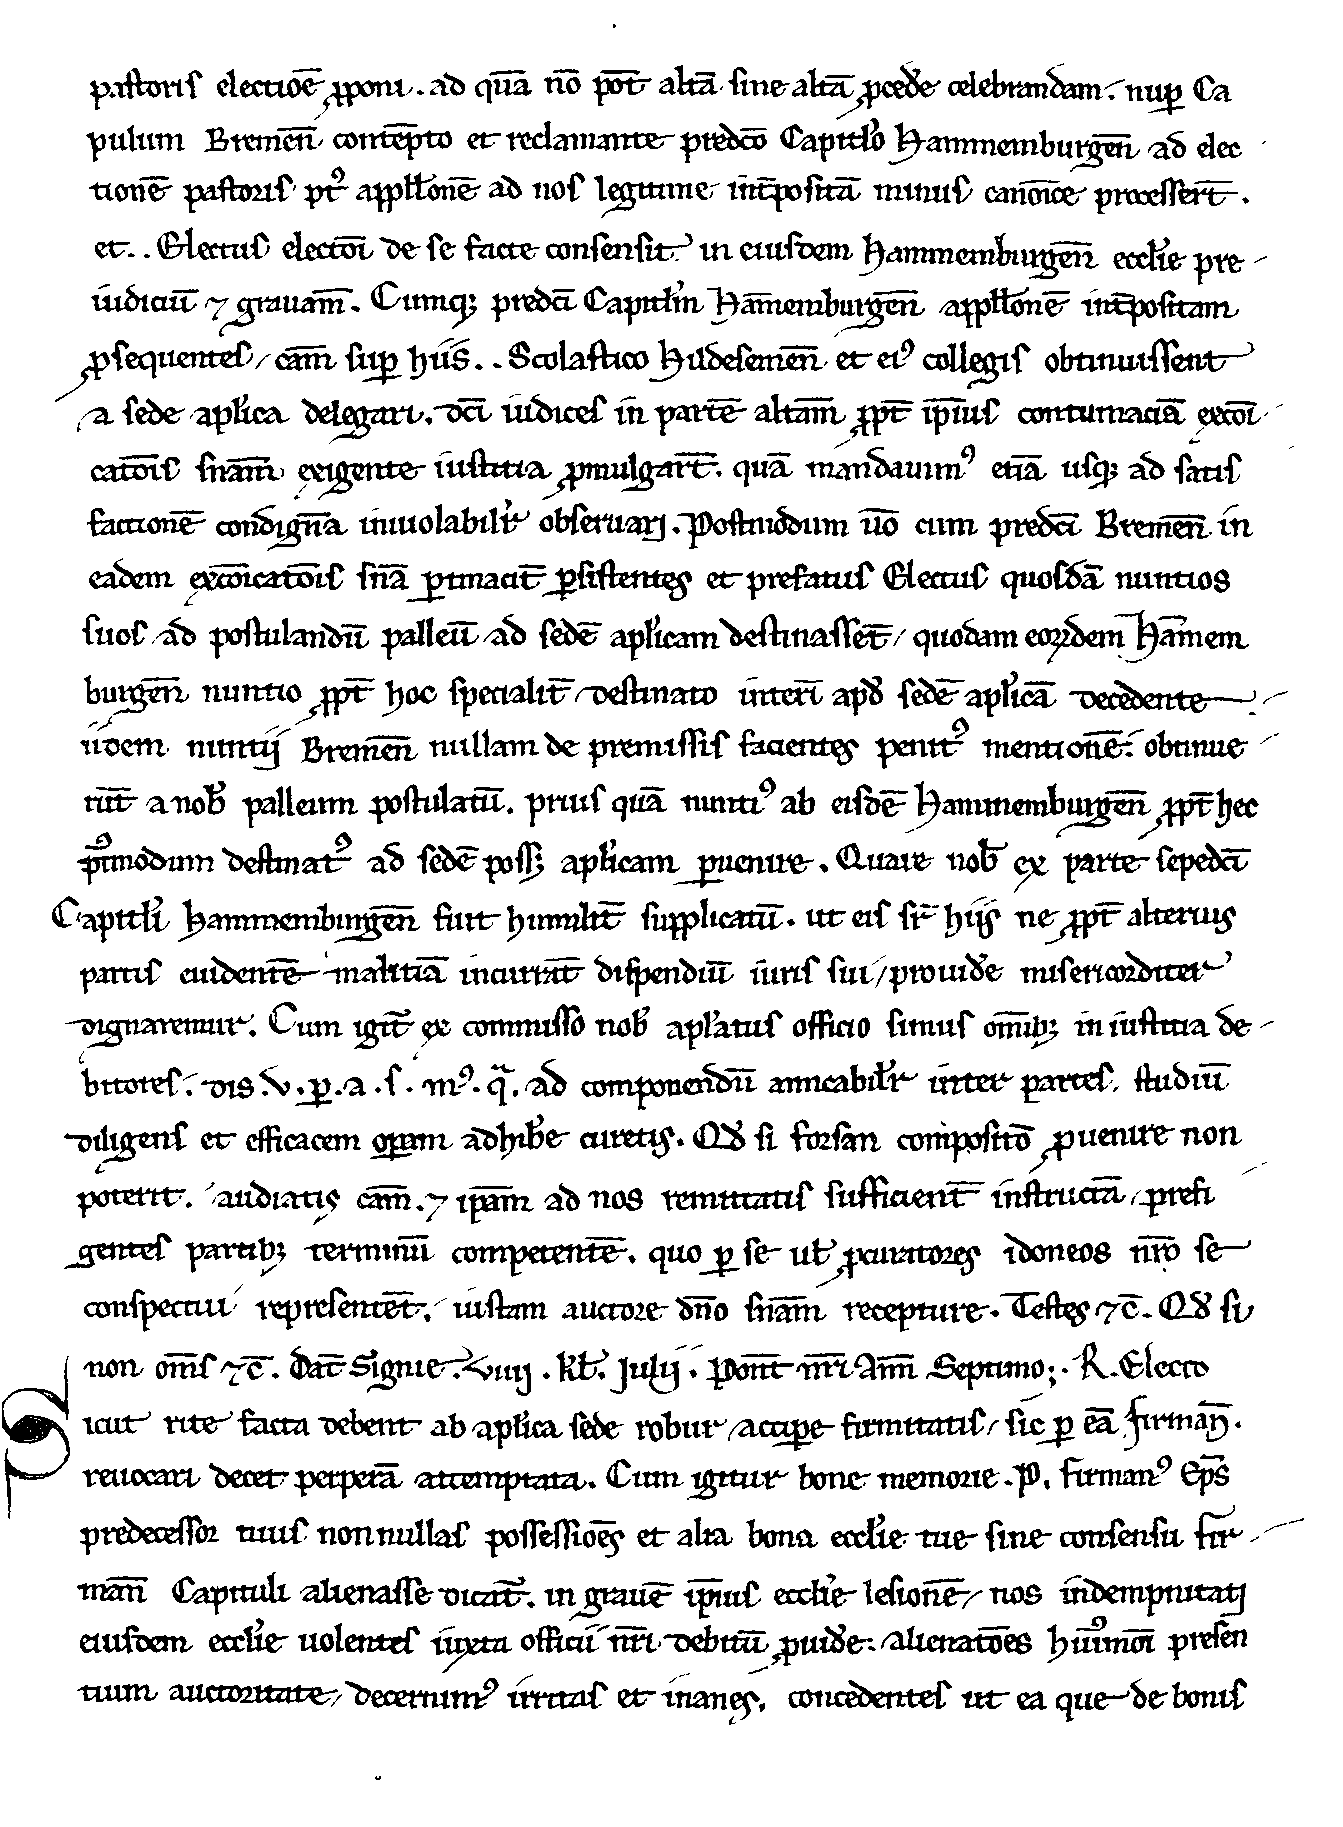 pastoris electioē ꝓponi . ad quā nō pōt altā sine altā ꝓcede᷑ celebrandam . nuꝑ Ca
pulum Bremeñ contēpto et reclamante predc̄o Capitl̓o Hammemburgeñ ad elec
tionē pastoris pꝰt appll̓onē ad nos legitime int̄positā minus canoīce processer̄t .
et . . Electus electōi de se facte consensit in eiusdem Hammemburgeñ eccl̓ie pre
iudiciū ⁊ grauam̄ . Cumqꝫ predc̄i Capitl̓m Ham̄emburgeñ appll̓onē int̄positam
ꝓsequentes / cam̄ suꝑ hiis . . Scolastico Hildesemeñ et eiꝰ collegis obtinuissent
a sede apl̓ica delegari . dc̄i iudices in partē altam̄ ꝓpt̄ ip̄ius contumaciā excōi
catōis snam̄ exigente iustitia ꝓmulgar̄t . quā mandauimꝰ etiā usqꝫ ad satis
factionē condignā inuolabilr̓ obseruari . Postmodum ūo cum predc̄i Bremeñ in
eadem excōicatōis snā ꝑtinacit̄ ꝑsistentes et prefatus Electus quosdā nuntios
suos ad postulandū palleū ad sedē apl̓icam destinasset̄ / quodam eoꝝdem Ham̄em
burgeñ nuntio ꝓpt̄ hoc specialit̄ destinato interī apd̓ sedē apl̓icā decedente
iidem nuntij Bremeñ nullam de premissis facientes penitꝰ mentionē : obtinue
rūt a nob̓ palleum postulatū . prius quā nuntiꝰ ab eisdē Hammemburgeñ ꝓpt̄ hec
pꝰtmodum destinatꝰ ad sedē possꝫ apl̓icam ꝑuenire . Quare nob̓ ex parte sepedc̄i
Capitl̓i Hammemburgeñ fuit humilit̄ supplicatū . ut eis sr̄ hijs ne ꝓpt̄ alterius
partis euidentē malitiā incurrāt dispendiū iuris sui / prouide᷑ misericorditer
dignaremur . Cum igit̄ ex commisso nob̓ apl̓atus officio simus om̄ibꝫ in iustitia de
bitores . dis . v . ꝑ . a . s . mꝰ . q̄ . ad componendū amicabilr̓ inter partes . studiū
diligens et efficacem oꝑam adhibe᷑ curetis . Qd̓ si forsan compositō ꝓuenire non
poterit . audiatis cam̄ . ⁊ ip̄am ad nos remittatis sufficient̄ instructā / prefi
gentes partibꝫ terminū competentē . quo ꝑ se ul̓ ꝓcuratores idoneos nr̄o se
conspectui representēt . iustam auctore dn̄o snam̄ recepture . Testes ⁊c̄ . Qd̓ si
non om̄s ⁊c̄ . Dat̄ Signie . Viiij . kl̓ . Julij . Pont̄ nr̄i Ann̄ Septimo ; . R . Electo
Sicut rite facta debent ab apl̓ica sede robur acciꝑe firmitatis / sic ꝑ eā Firmañ .
reuocari decet perperā attemptata . Cum igitur bone memorie . P . firmanꝰ Ep̄s
predecessor tuus nonnullas possessiōes et alia bona eccl̓ie tue sine consensu fir
mañ Capituli alienasse dicat̄ . in grauē ip̄ius eccl̓ie lesionē / nos indempnitati
eiusdem eccl̓ie uolentes iuxta officii nr̄i debitū ꝓuide᷑ . alienatōes huiꝰmōi presen
tium auctoritate / decernimꝰ irritas et inanes , concedentes ut ea que de bonis